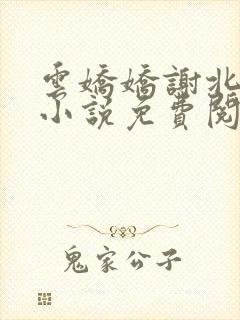 雲嬌嬌謝北
小說免費閱
鬼家公子